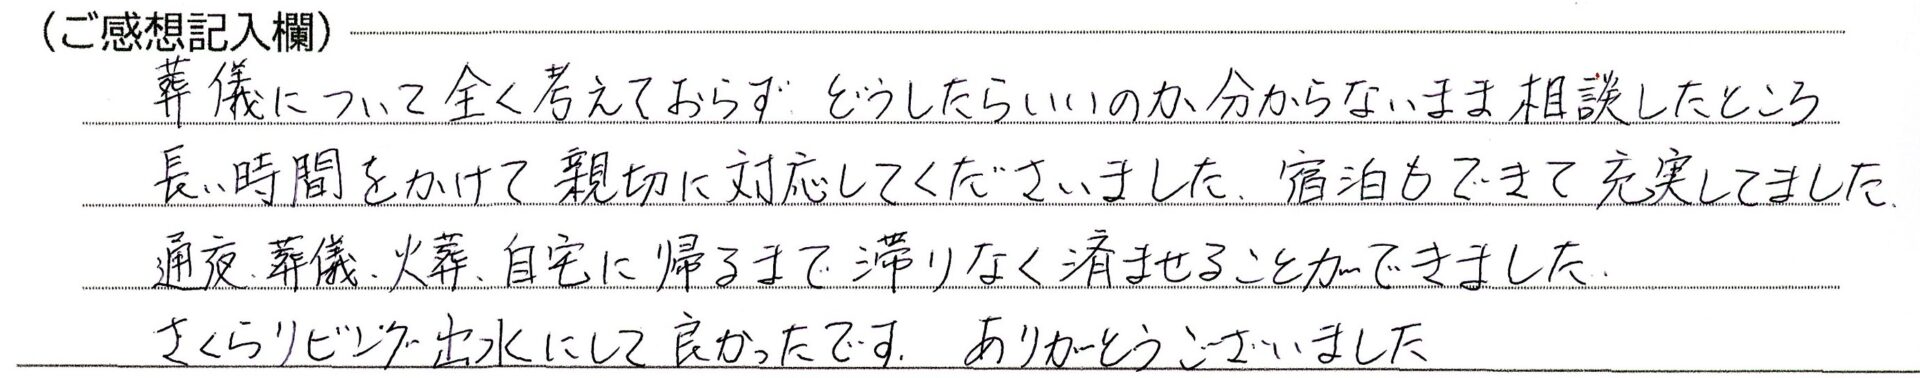 （ご感想記入欄）
葬儀について全く考えておらず どうしたらいいのか分からないまま相談したところ
長い時間をかけて親切に対応してくださいました、宿泊もできて充実してました、
通夜、葬儀、火葬、自宅に帰るまで滞りなく済ませることができました、
さくらリビング出水にして良かったです、 ありがとうございました